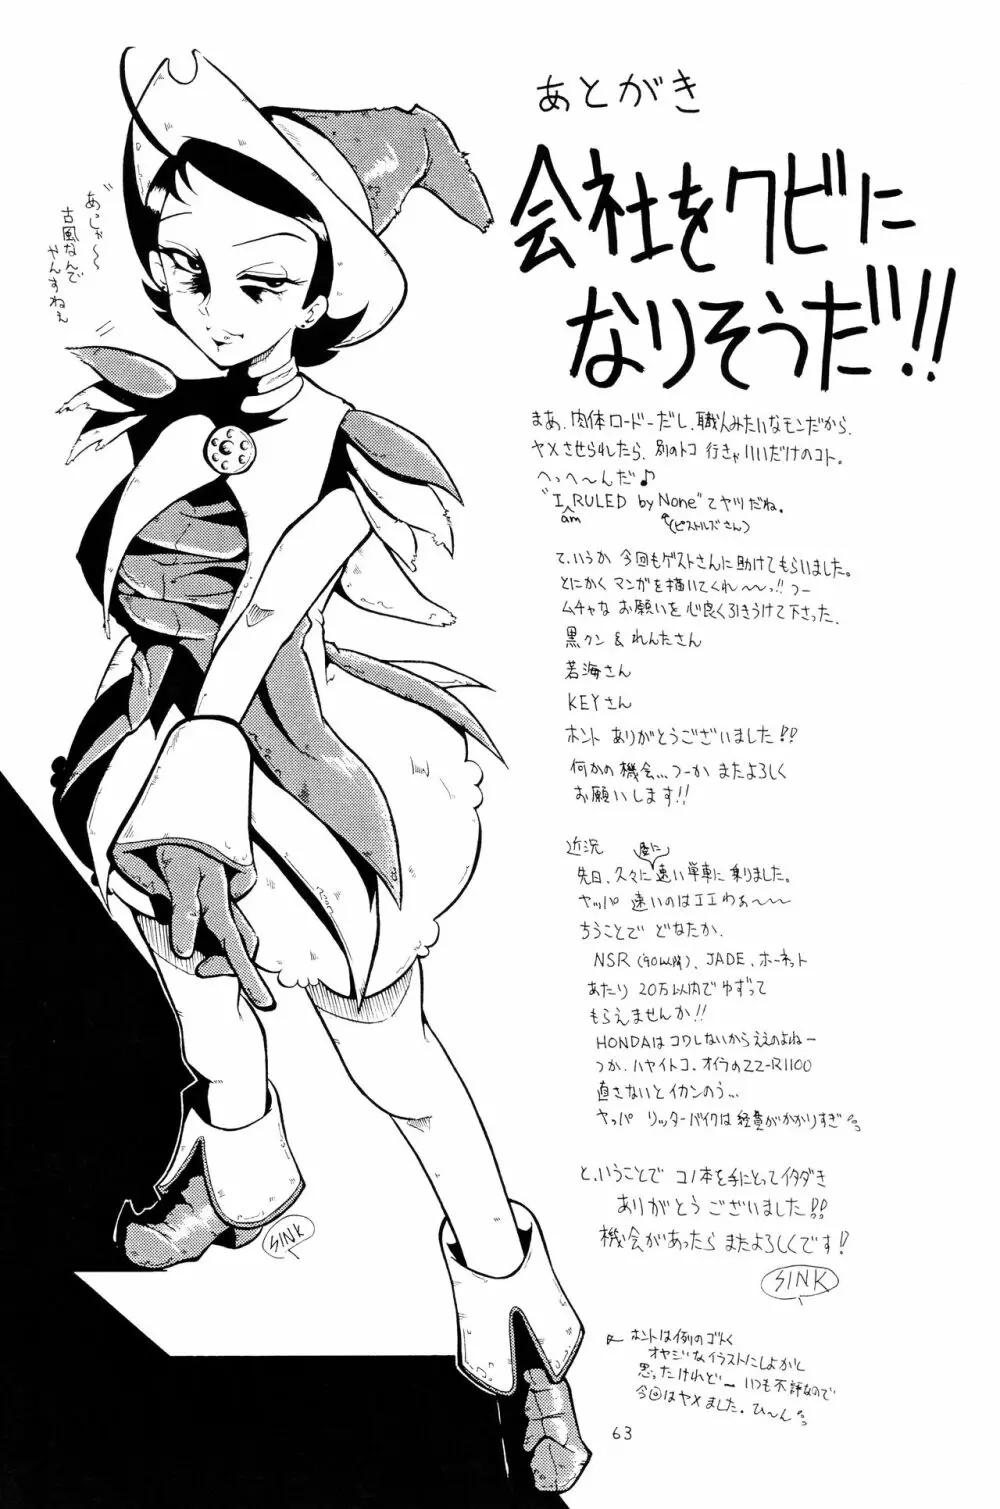 あとがき
会社をクビに
なりそうだ!!
まあ、肉体ロードーだし、職人みたいなモンだから、
ヤメさせられたら、別のトコ行きゃいいだけのコト。
へっへ〜んだ♪
"I RULED by None"てヤツだね。
am
(ピストルズさん)
て、いうか 今回もゲストさんに助けてもらいました。
とにかく マンガを描いてくれ〜〜っ!! つー
ムチャな お願いを 心良く引きうけて下さった、
黒クン & れんたさん
若海さん
KEYさん
ホント ありがとうございました!!
何かの機会...つーか またよろしく
お願いします!!
近況
先日、久々に 速い単車に 乗りました。
ヤッパ 速いのはエエわぁ〜〜
ちうことで どなたか、
NSR(90以降)、JADE、ホーネット
あたり 20万以内で ゆずって
もらえませんか!!
HONDAは コワレないから ええのよねー
つか、ハヤイトコ、オイラのZZ-R1100
直さないと イカンのう...
ヤッパ リッターバイクは 経費がかかりすぎ
と、いうことで コノ本を手にとってイタダき
ありがとう ございました!!
機会があったら またよろしくです!
SINK
ホントは例のゴトく
オヤジなイラストにしよかと
思ったけれど ー いつも不評なので
今回はヤメました。ひ〜ん
63
あっしゃ〜〜
古風なんで
やんすねぇ
SINK